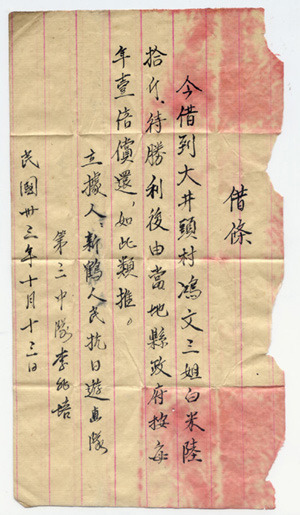 借條
今借到大井頭村馮文三姐白米陸
拾斤、待勝利後由當地縣政府按每
年壹倍償還，如此類推。
立據人：新鶴人民抗日遊擊隊
第三中隊李兆培
民國卅三年十月十三日